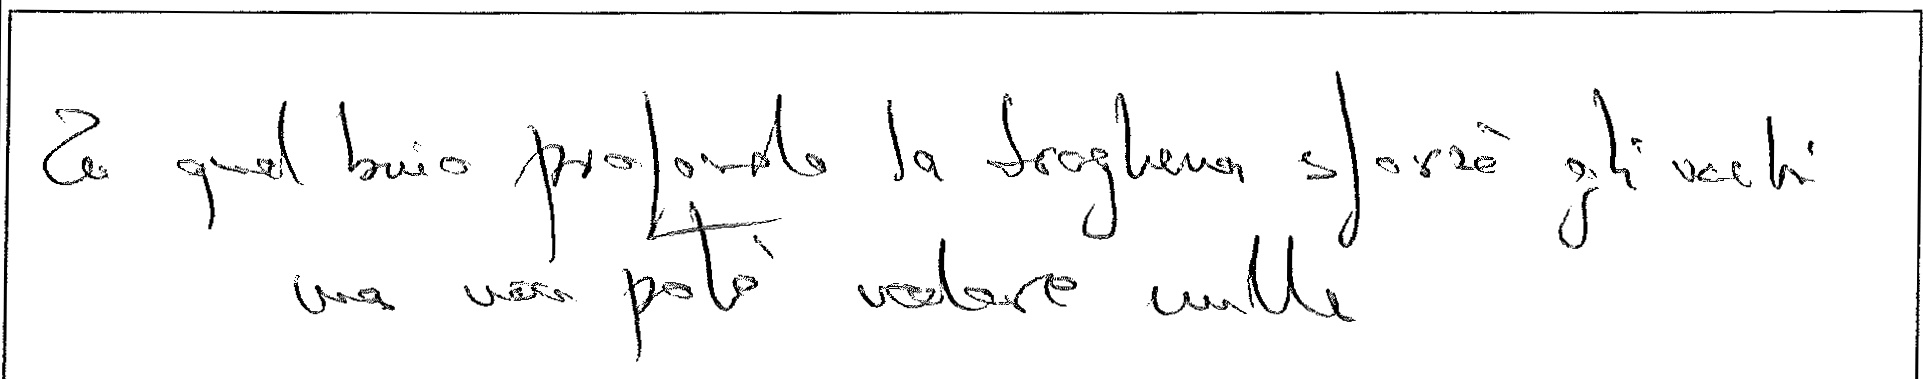 In quel buio profondo la troghena sforzò gli occhi
ma non poté vedere nulla